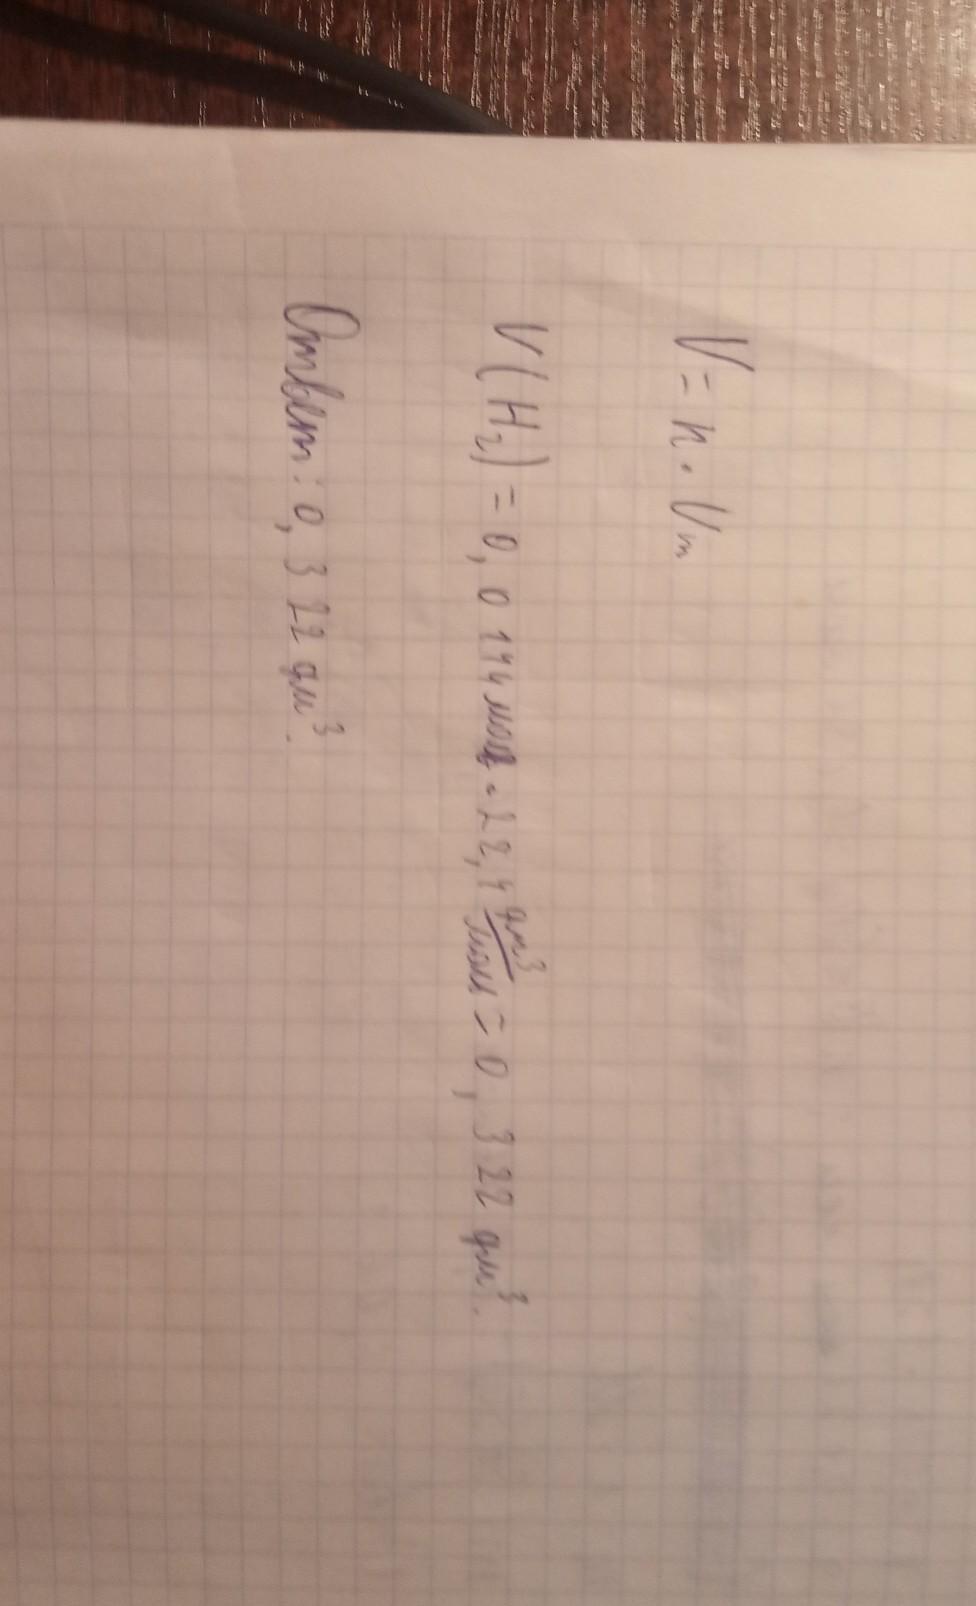 V = n · Vm
V(H₂) = 0,0144 моль · 22,4 дм³/моль = 0,322 дм³.
Ответ: 0,322 дм³.